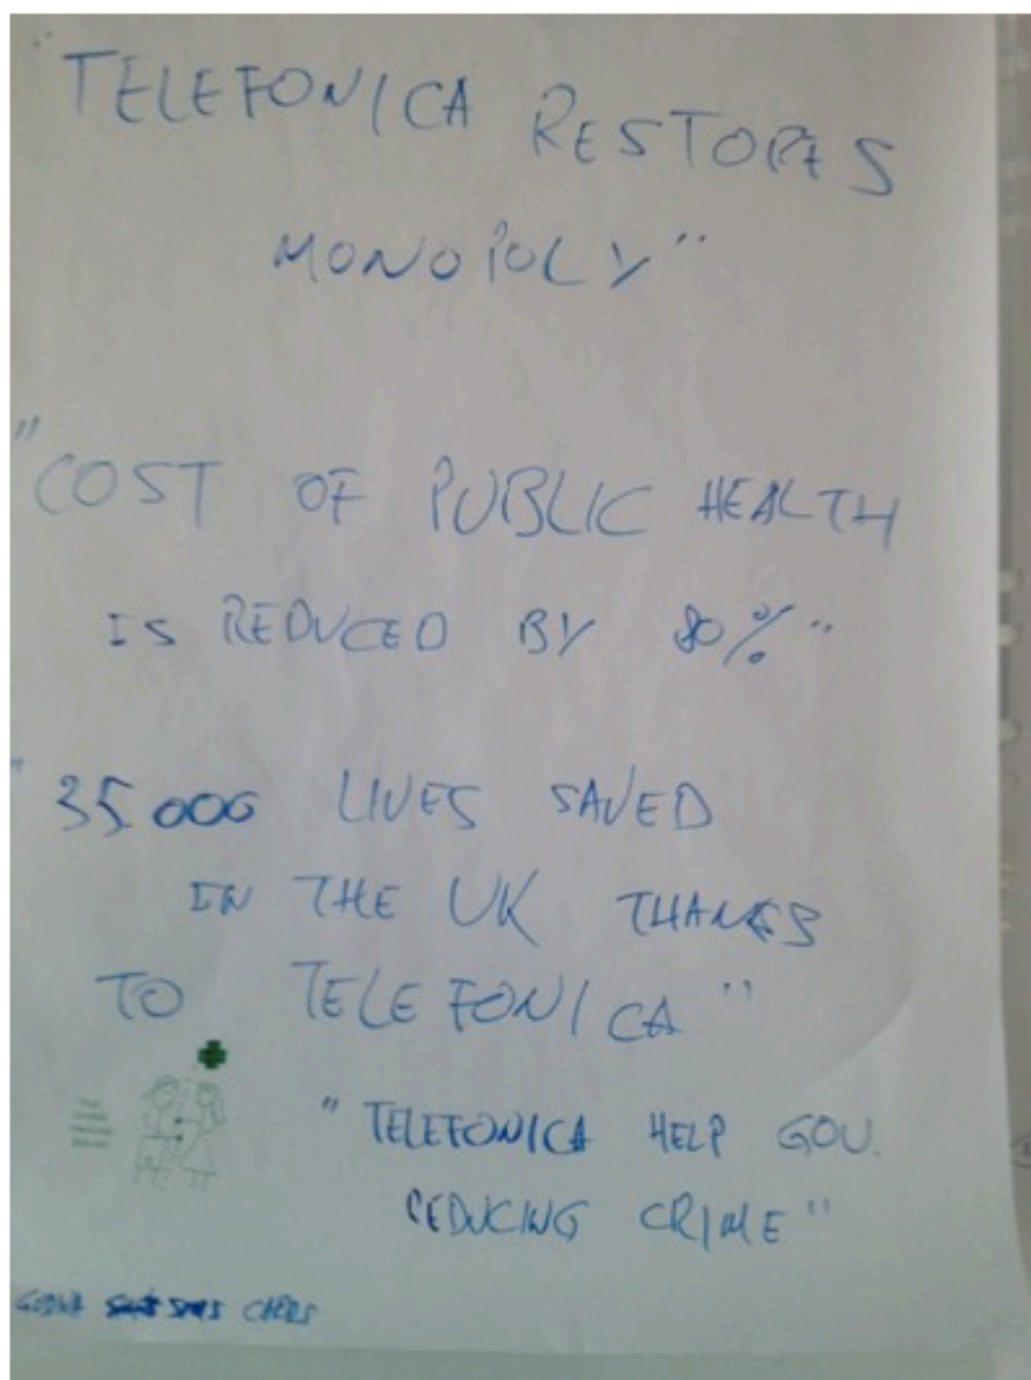 "TELEFONICA RESTORES
MONOPOLY"
"COST OF PUBLIC HEALTH
IS REDUCED BY 80%"
"35000 LIVES SAVED
IN THE UK THANKS
TO TELEFONICA"
"TELEFONICA HELP GOV.
REDUCING CRIME"